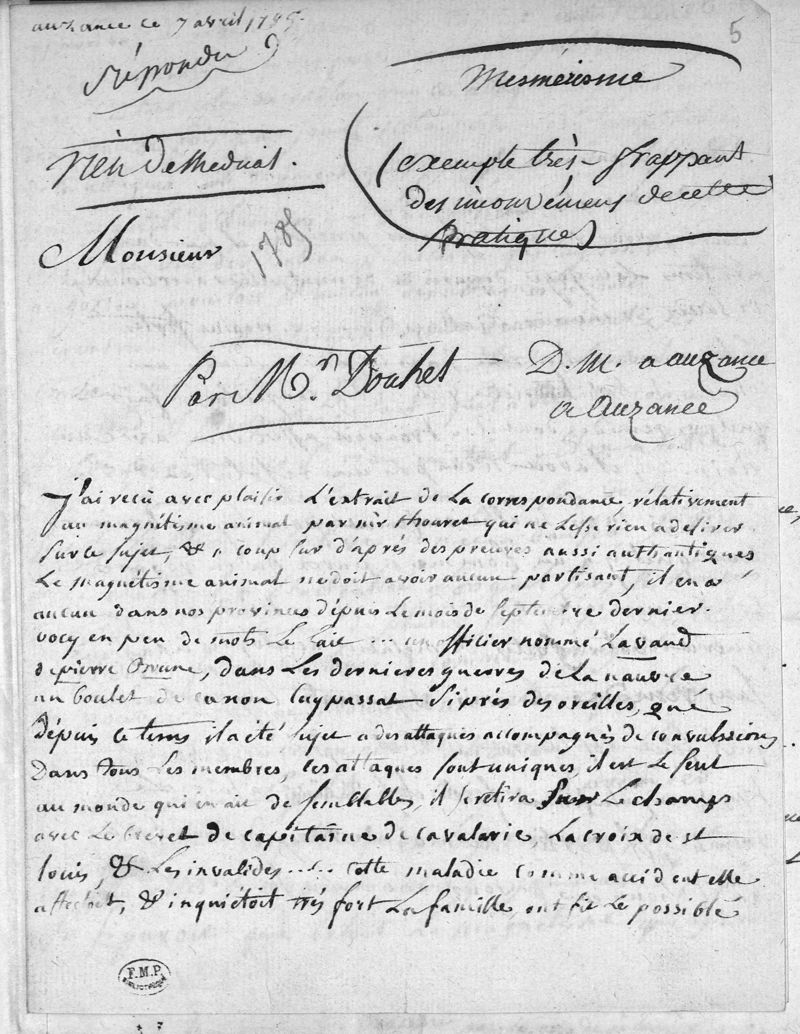 auzance ce 7 avril 1785.
5
répondu
Mesmérisme
rien de medical.
(exemple très-frappant
des inconvéniens de cette
pratique)
Monsieur
1785
Par Mr. Douhet - D. M. a auzance
a auzance
J'ai reçû avec plaisir L'extrait de La correspondance, rélativement
au magnétisme animal par mr thouret qui ne Lesse rien a desirer
sur ce sujet, & a coup sur d'aprés des preuves aussi authantiques
Le magnétisme animal ne doit avoir aucun partisant, il en a
aucun dans nos provinces dépuis Le mois de septembre dernier.
vocy en peu de mots Le fait ... un officier nommé Lavaud
de pierre Brune, dans Les dernieres guerres de La nauvre
un boulet de canon Luy passat si prés des oreilles, que
dépuis ce tems il a été sujet a des attaques accompagnés de convulssions
Dans tous Les membres, ces attaques sont uniques, il est Le seul
au monde qui en aie de semblables, il se retira sur Le champs
avec Le brevet de capitaine de cavalarie, La croix de st
louis, & Les invalides ..... cette maladie comme accidentelle
affectoit, & inquiétoit trés fort La famille, ont fit Le possible
F.M.P.
BIBLIOTHEQUE